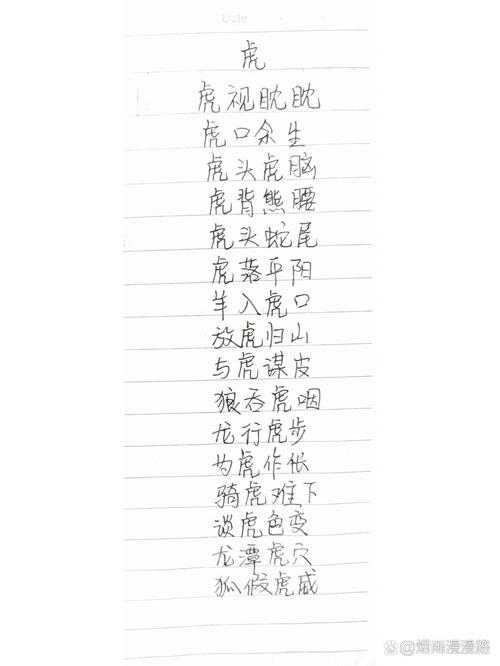 虎
虎视眈眈
虎口余生
虎头虎脑
虎背熊腰
虎头蛇尾
虎落平阳
羊入虎口
放虎归山
与虎谋皮
狼吞虎咽
龙行虎步
为虎作伥
骑虎难下
谈虎色变
龙潭虎穴
狐假虎威